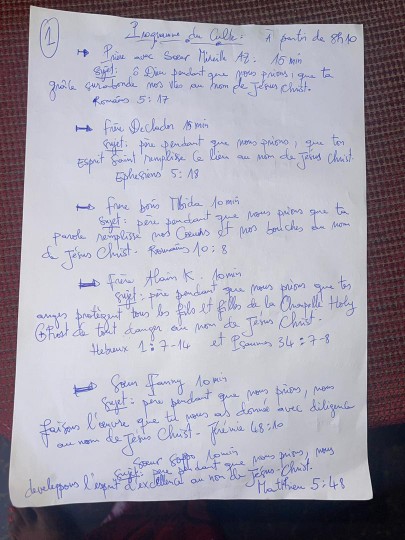 1
Programme du Culte : À partir de 8h10
Prière avec Sœur Mireille AZ : 15 min
Sujet : ô Dieu pendant que nous prions, que ta
grâce surabonde nos vies au nom de Jésus Christ.
Romains 5 : 17
frère 15 min
Sujet : père pendant que nous prions, que ton
Esprit Saint remplisse ce lieu au nom de Jésus Christ.
Ephesiens 5 : 18
frère 10 min
Sujet : père pendant que nous prions que ta
parole remplisse nos Cœurs et nos bouches au nom
de Jésus Christ - Romains 10 : 8
Frère Alain K. 10 min
Sujet : père pendant que nous prions que tes
anges protègent tous les fils et filles de la Chapelle Holy
de tout danger au nom de Jésus Christ -
Hebreux 1 : 7-14 et Psaumes 34 : 7-8
Sœur Fanny 10 min
Sujet : père pendant que nous prions, nous
faisons l'œuvre que tu nous as donné avec diligence
au nom de Jésus Christ - Jérémie 48 : 10
Sœur 10 min
Sujet : père pendant que nous prions, nous
developpons l'esprit d'excellence au nom de Jésus-Christ.
Matthieu 5 : 48